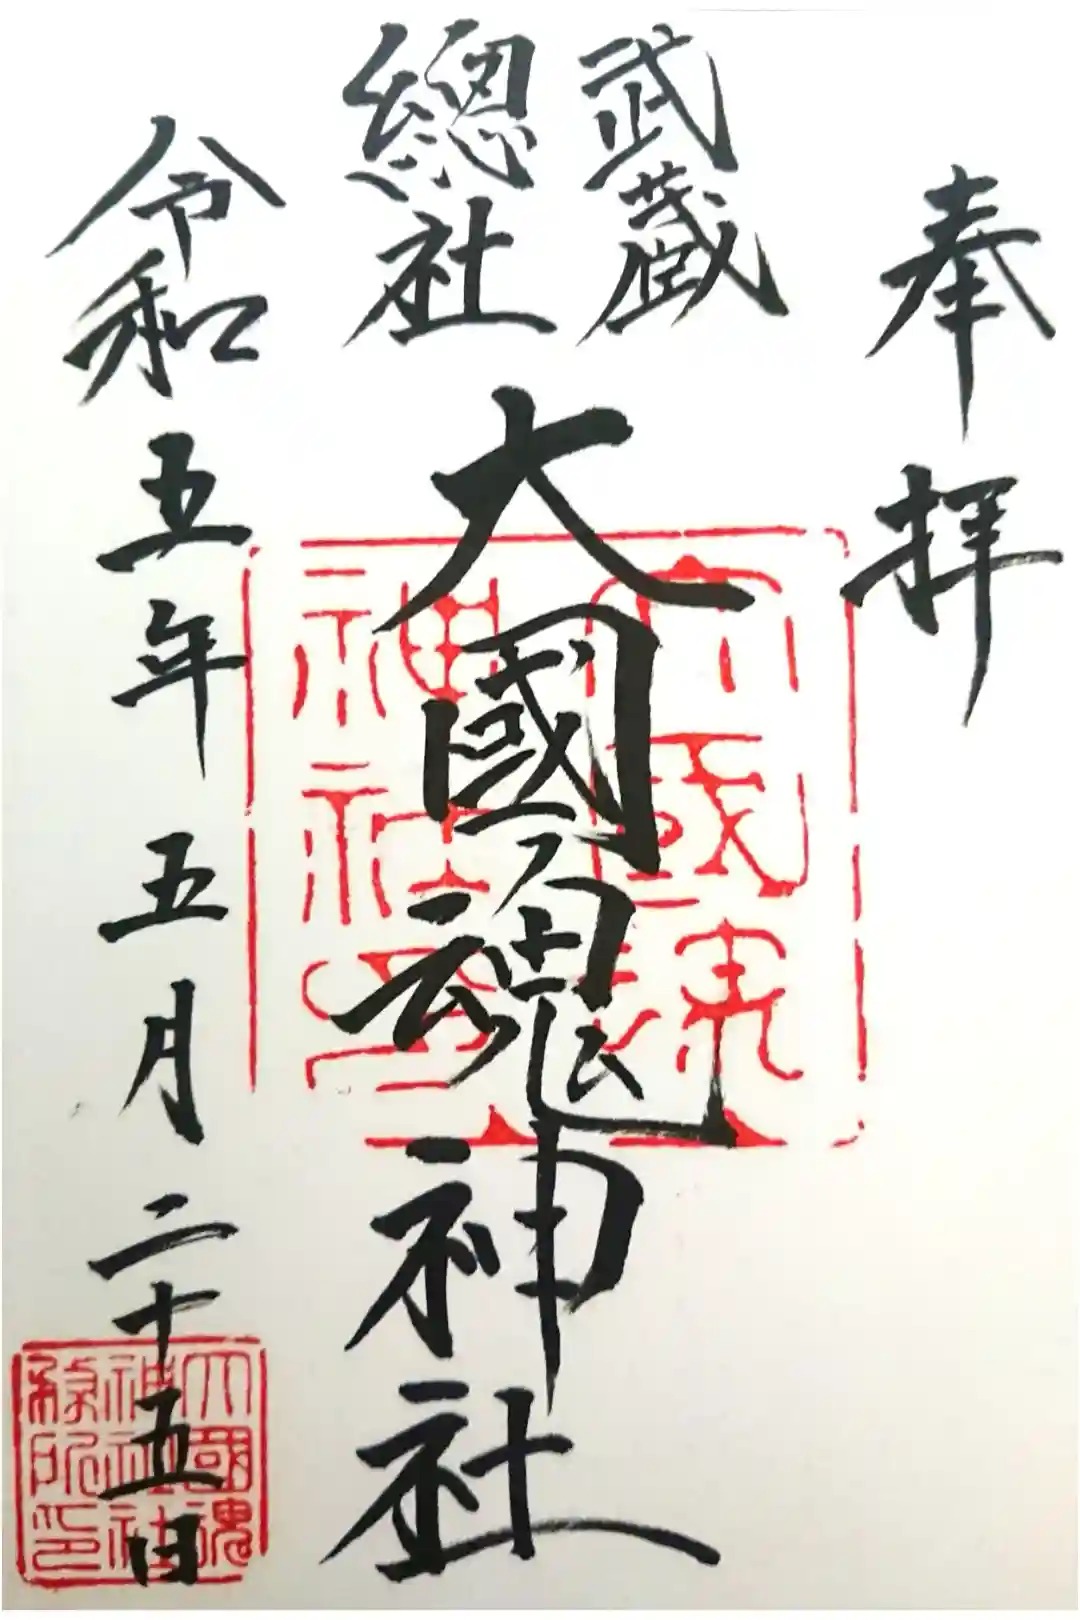 奉拝
武蔵
總社
大國魂神社
令和五年五月二十五日
大國魂
神社
神社社
務所印